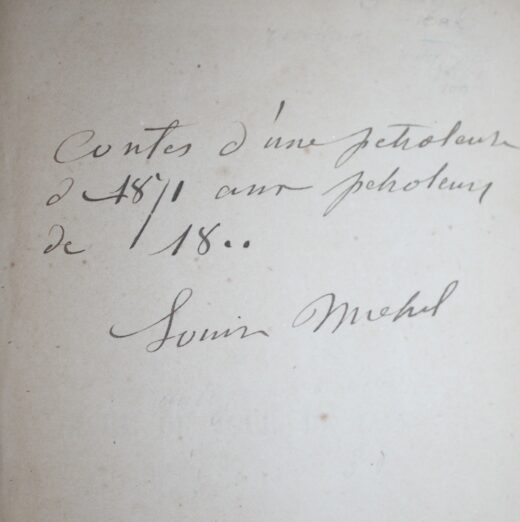 Contes d'une petroleuse
d 1871 aux petroleurs
de 18..
Louise Michel